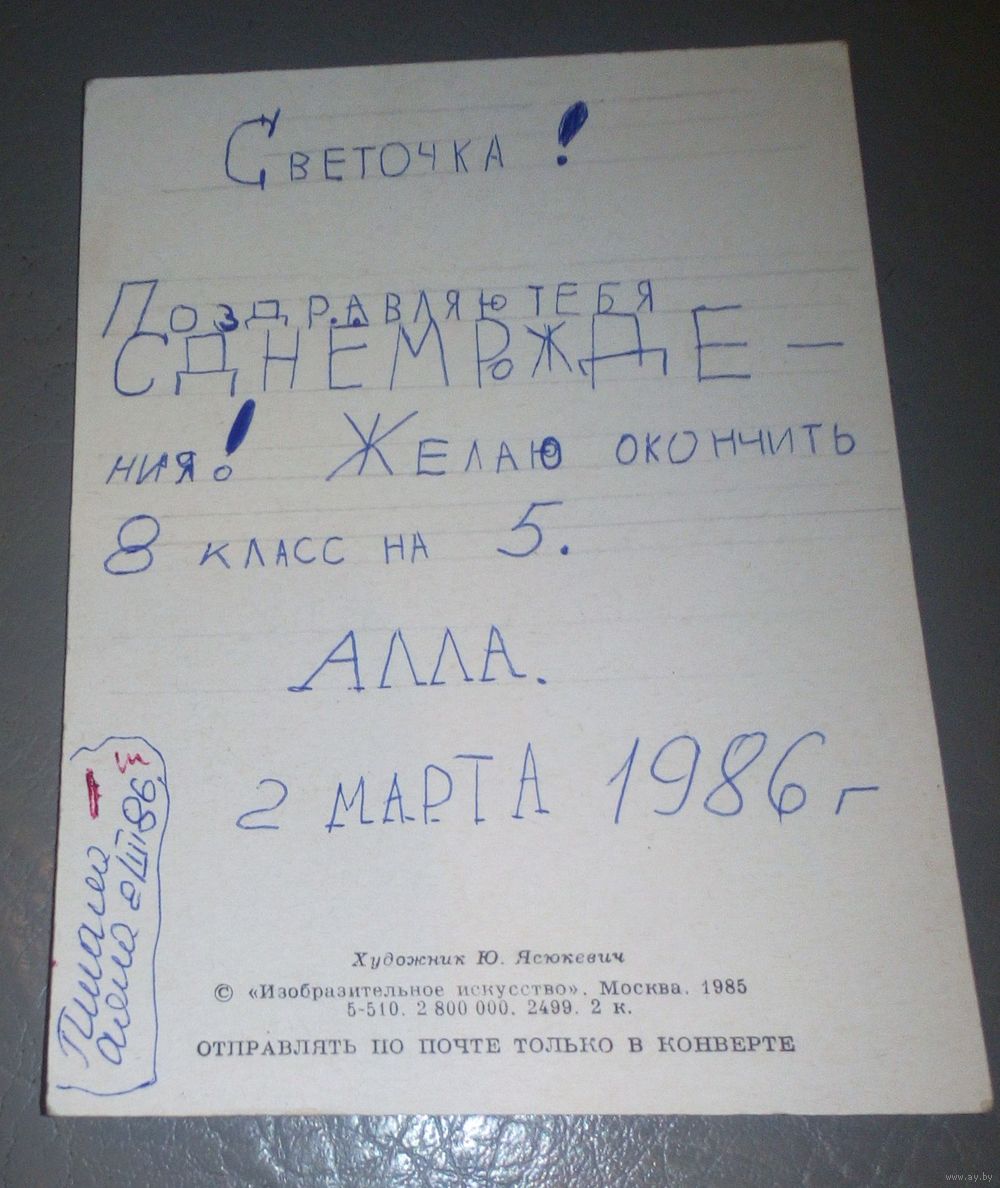 Светочка!
Поздравляю тебя
С ДНЕМ РОЖДЕ-
ния! Желаю окончить
8 класс на 5.
АЛЛА.
2 МАРТА 1986 г
Писала
Алла 2 III 86
Художник Ю. Ясюкевич
© «Изобразительное искусство». Москва. 1985
5-510. 2 800 000. 2499. 2 к.
ОТПРАВЛЯТЬ ПО ПОЧТЕ ТОЛЬКО В КОНВЕРТЕ
www.ay.by